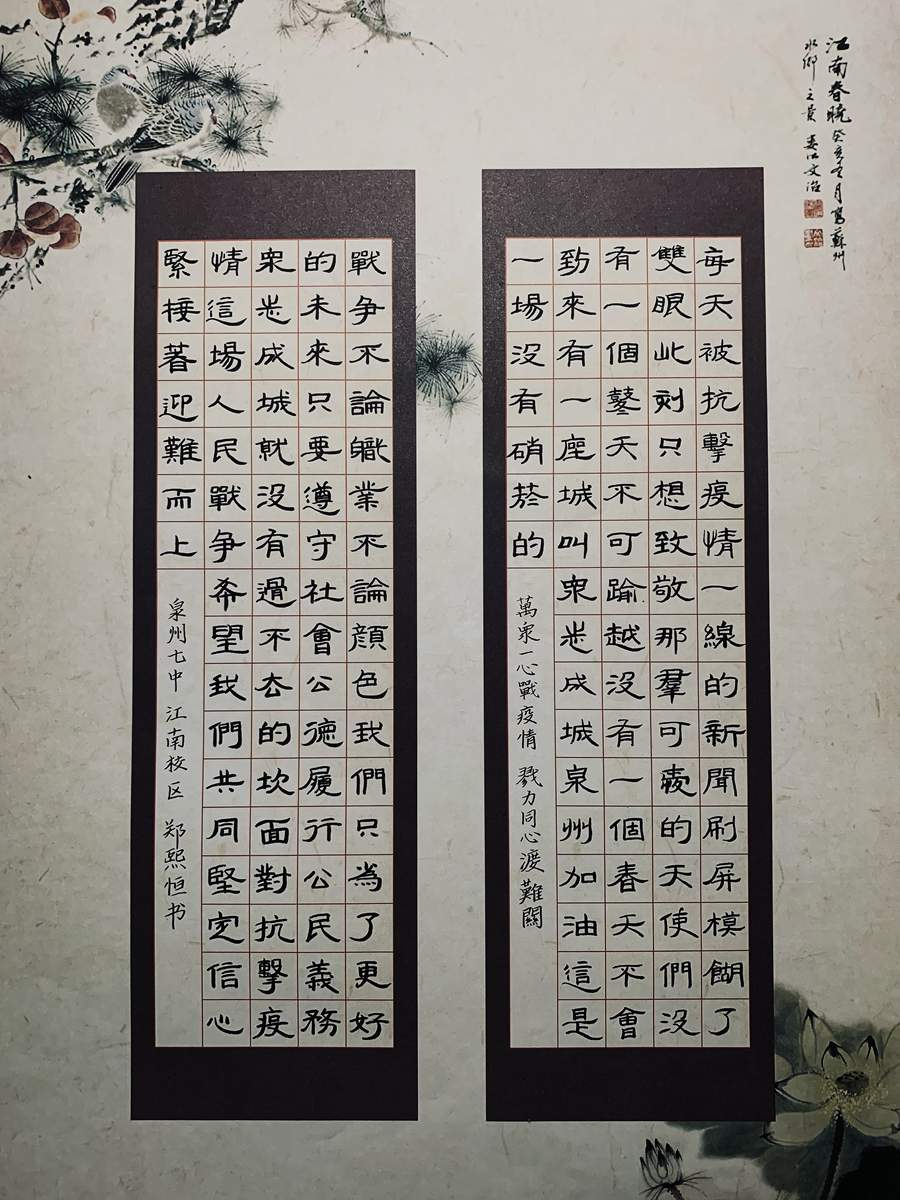 江南春曉 癸亥冬月寫蘇州
水鄉之景 婁江文治
每天被抗擊疫情一線的新聞刷屏模餬了
雙眼此刻只想致敬那羣可愛的天使們沒
有一個鼕天不可踰越沒有一個春天不會
到來有一座城叫眾志成城泉州加油這是
一場沒有硝菸的
萬眾一心戰疫情 戮力同心渡難關
戰爭不論職業不論顏色我們只為了更好
的未來只要遵守社會公德履行公民義務
眾志成城就沒有過不去的坎面對抗擊疫
情這場人民戰爭希望我們共同堅定信心
緊接著迎難而上
泉州七中 江南校区 郑熙恒书